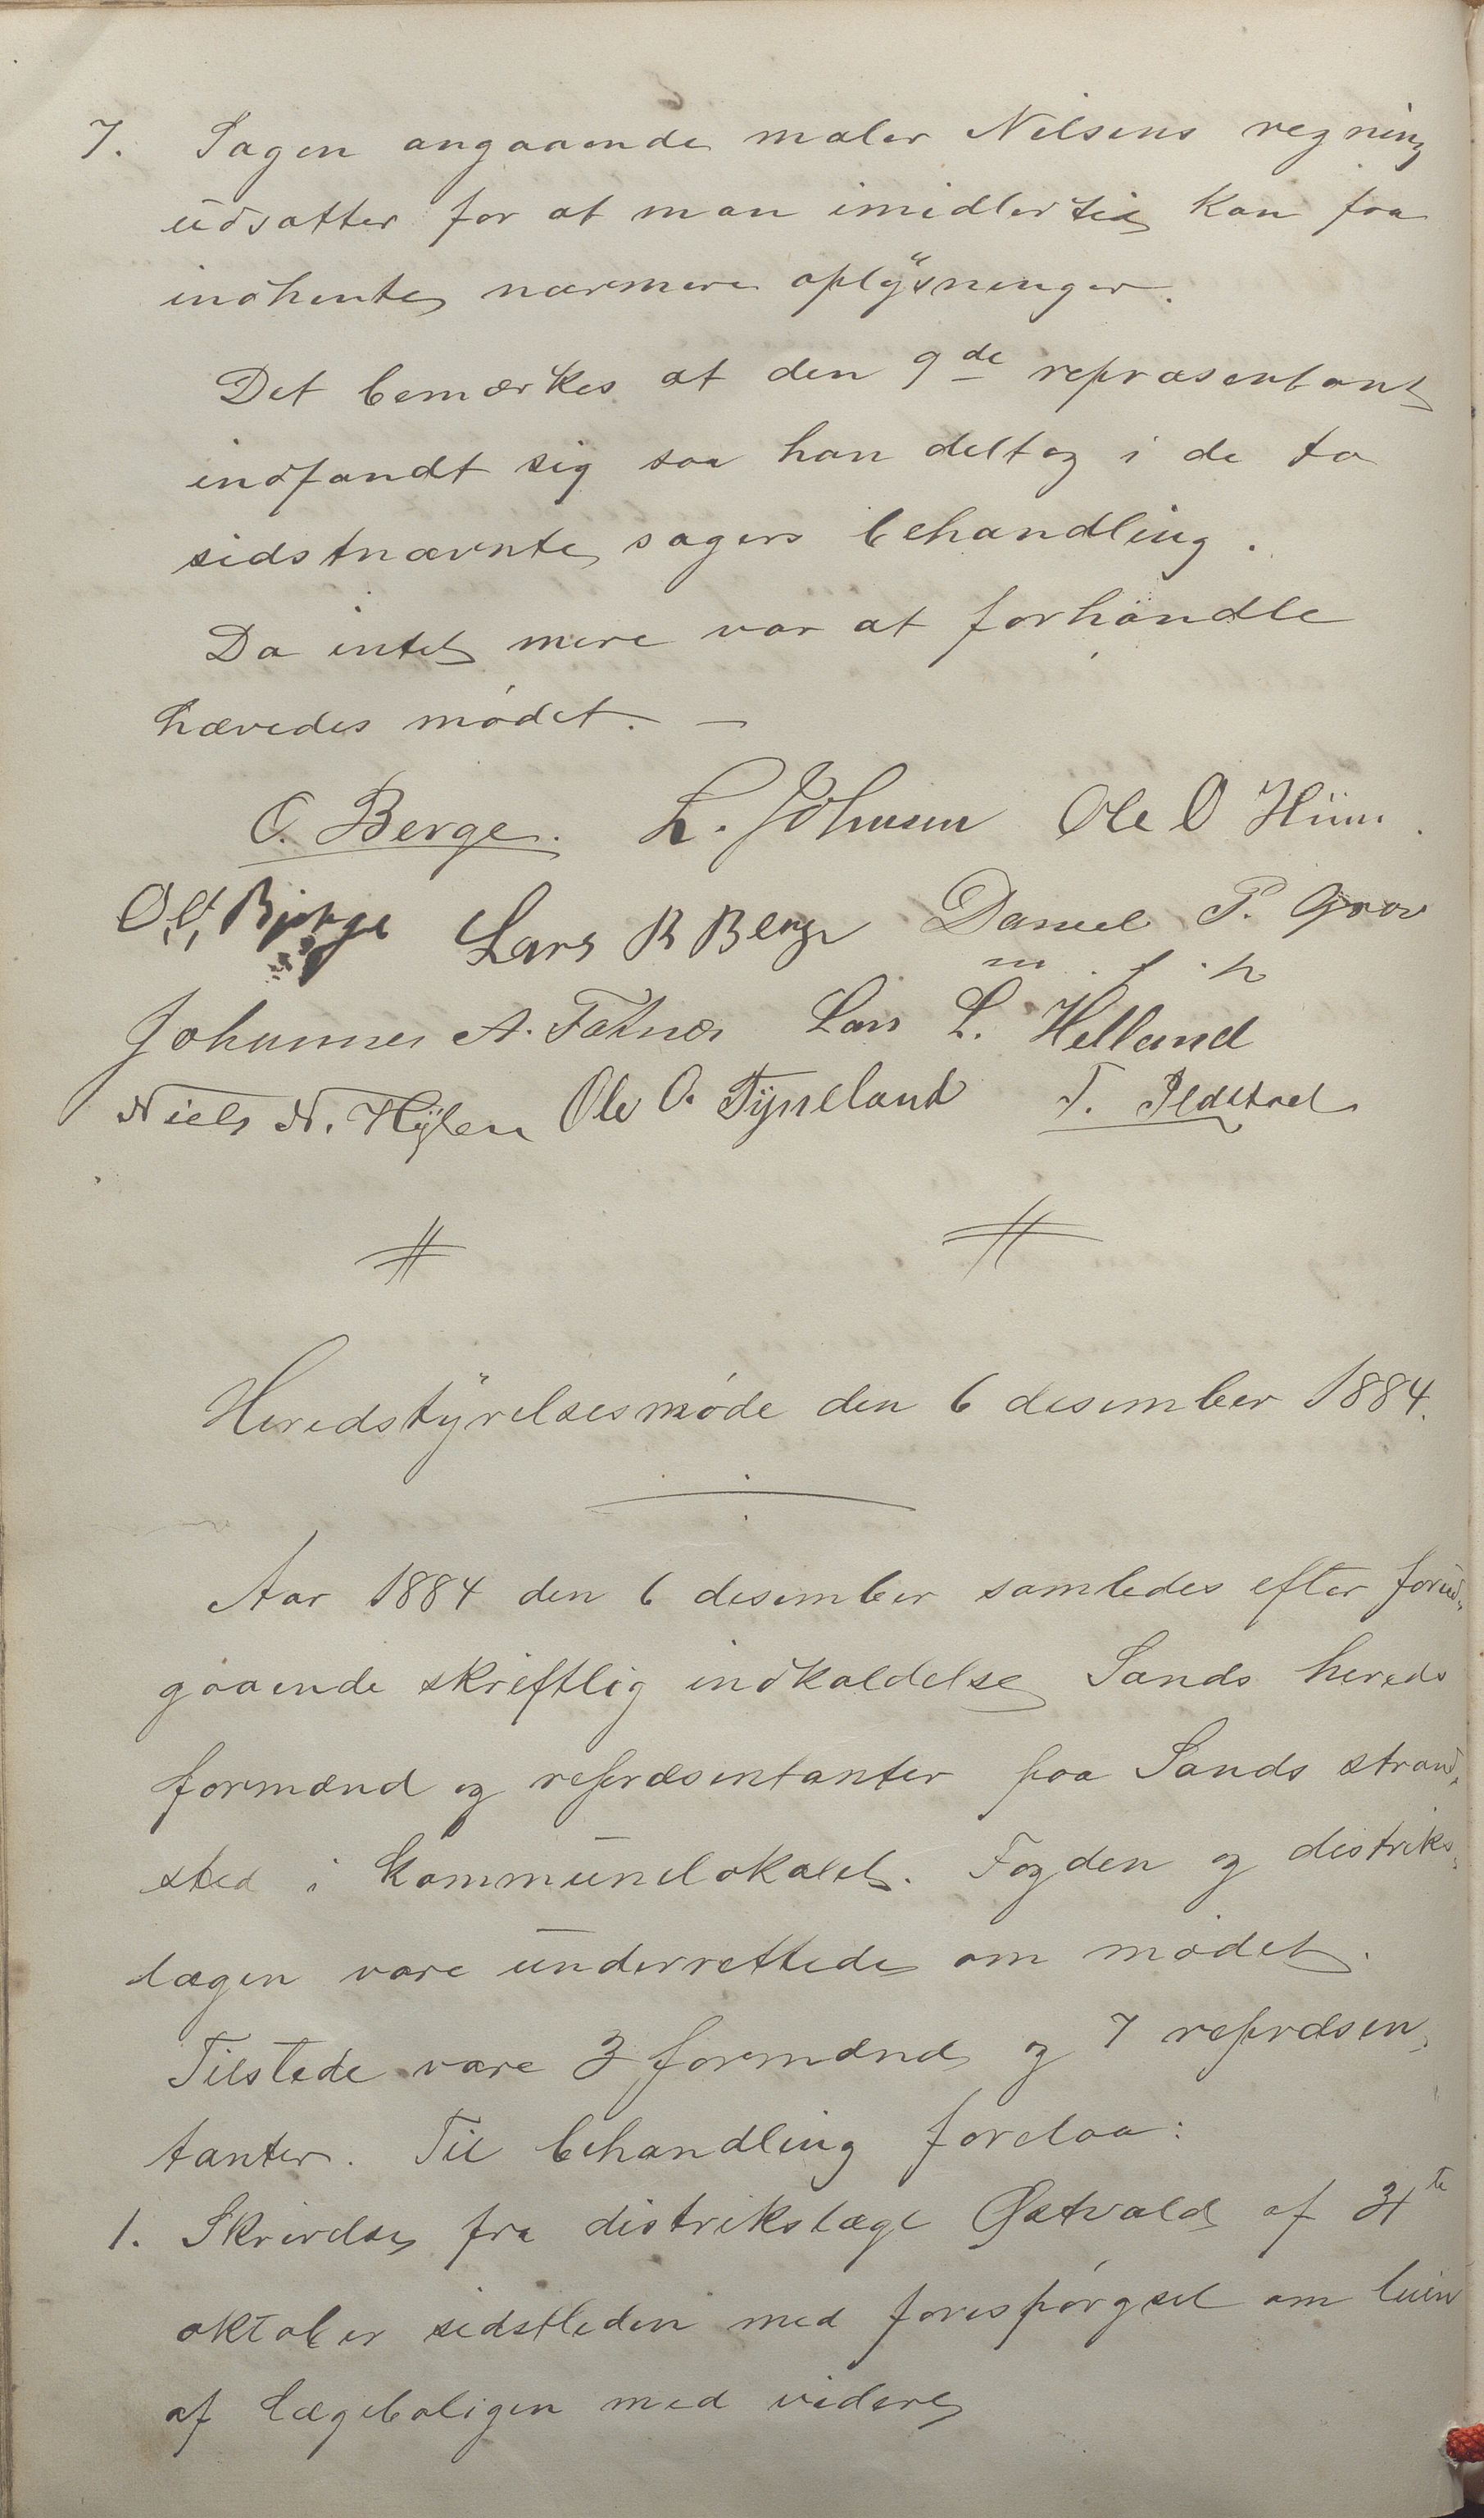 7. Sagen angaaende maler Nilsens regning
udsattes for at man imidlertid kan faa
indhente nærmere oplysninger.
Det bemærkes at den 9de repræsentant
indfandt sig saa han deltog i de to
sidstnævnte sagers behandling.
Da intet mere var at forhandle
hævedes mødet. —
O. Berge. L. Johnsen Ole O Hiim.
Lars B Berge Daniel P. Grov
m. f. p
Johannes A. Fatnes Lars L. Helland
Niels N. Hylen Ole O. Tjyseland T.
Heredstyrelsesmøde den 6 desember 1884.
Aar 1884 den 6 desember samledes efter forud„
gaaende skriftlig indkaldelse Sands hereds
formænd og repræsentanter paa Sands strand„
sted i kommunelokalet. Fogden og distriks„
lægen vare underrettede om mødet.
Tilstede vare 3 formænd og 7 repræsen„
tanter. Til behandling forelaa:
1. Skrivelse fra distrikslæge Østvold af 31te
oktober sidstleden med forespørgsel om leien
af lægeboligen med videre